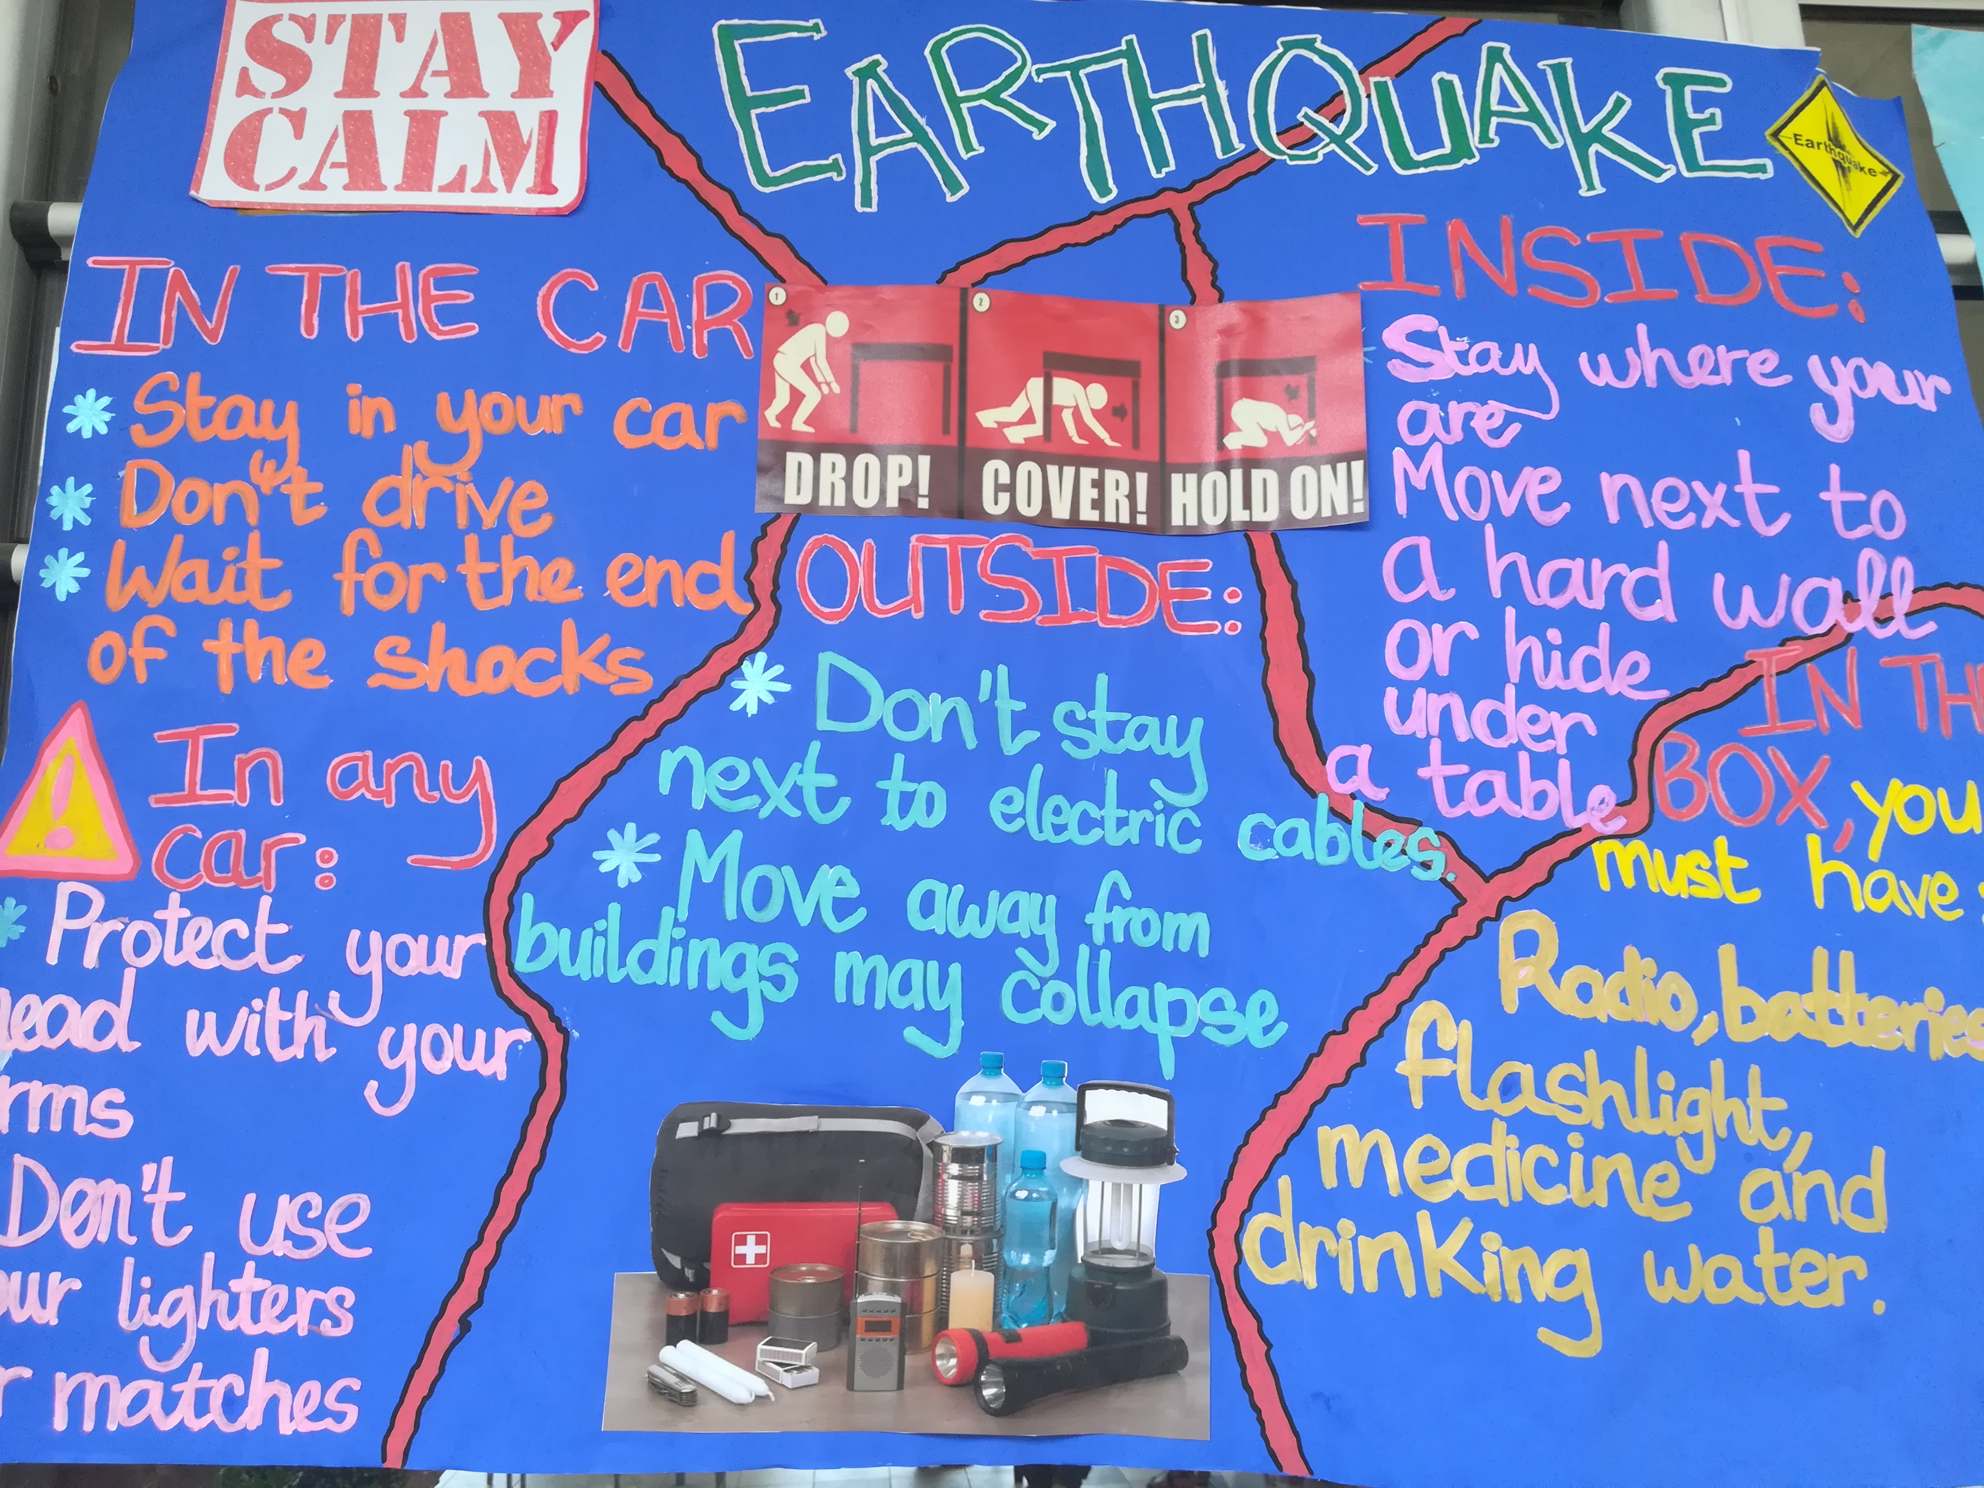 STAY
CALM
EARTHQUAKE
Earthquake
IN THE CAR
Stay in your car
Don't drive
Wait for the end
of the shocks
In any
car:
Protect your
head with your
rms
Don't use
our lighters
r matches
1
2
3
DROP!
COVER!
HOLD ON!
OUTSIDE:
Don't stay
next to electric cables.
Move away from
buildings may collapse
INSIDE:
Stay where your
are
Move next to
a hard wall
or hide
under
a table
IN TH
BOX, you
must have:
Radio, batteries
flashlight,
medicine and
drinking water.